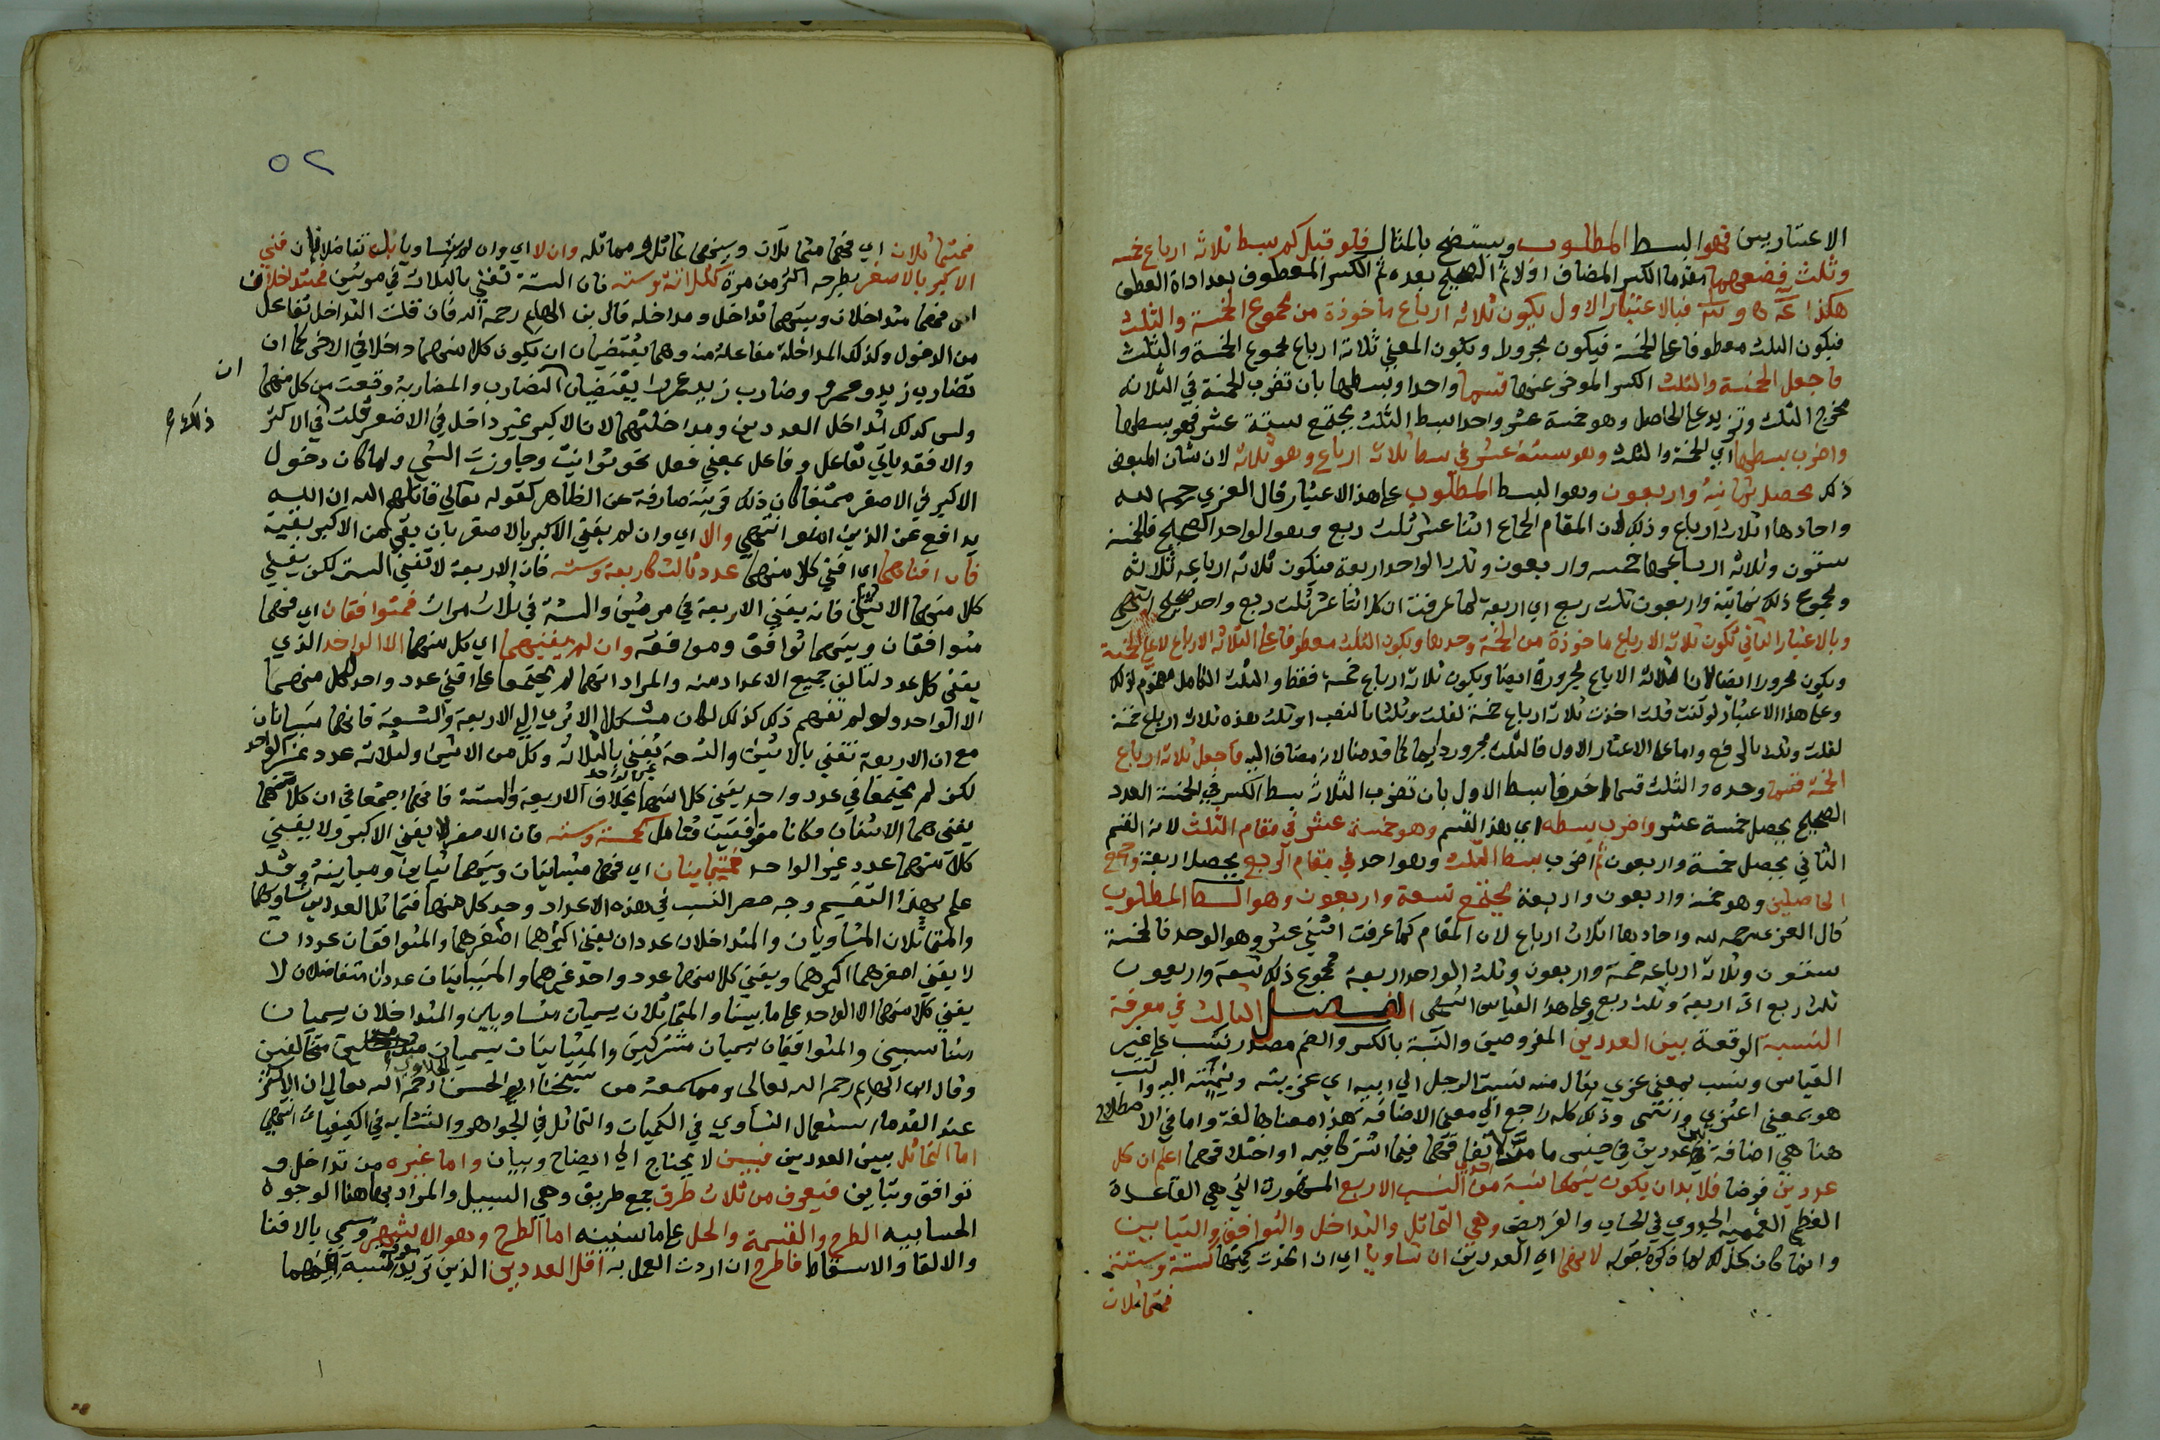 الاعتبارين فهو البسط المطلوب ويتضح بالمثال فلو قيل كم بسط ثلاثة ارباع خمسة
وثلث فضعهما مقدما الكسر المضاف اولا ثم الصحيح بعده ثم الكسر المعطوف بعد اداة العطف
هكذا فبالاعتبار الاول يكون ثلاثة ارباع ماخوذة من مجموع الخمسة والثلث
فيكون الثلث معطوفا على الخمسة فيكون مجرورا ويكون المعنى ثلاثة ارباع مجموع الخمسة والثلث
فاجعل الخمسة والثلث الكسر الموخر عنها قسما واحدا وبسطها بان تضرب الخمسة في الثلاثة
مخرج الثلث وتزيد على الحاصل وهو خمسة عشر واحدا بسط الثلث يجتمع ستة عشر فهو بسطها
واضرب بسطها اي الخمسة والثلث وهو ستة عشر في بسط ثلاثة ارباع وهو ثلاثة لان شان المبعض
ذلك يحصل ثمانية واربعون وهو البسط المطلوب على هذا الاعتبار قال العزي رحمه الله
واحادها اثلاث ارباع وذلك لان المقام الجامع اثنا عشر ثلث ربع وهو الواحد الصحيح فالخمسة
ستون وثلاثة ارباعها خمسة واربعون وثلث الواحد اربعة فيكون ثلاثة ارباعه ثلاثة
ومجموع ذلك ثمانية واربعون ثلث ربع اي اربعة لما عرفت ان كل اثنا عشر ثلث ربع واحد صحيح انتهى
وبالاعتبار الثاني تكون ثلاثة الارباع ماخوذة من الخمسة وحدها ويكون الثلث معطوفا على الثلاثة الارباع لا على الخمسة
ويكون مجرورا ايضا لان ثلاثة الارباع مجرورة ايضا ويكون ثلاثة ارباع خمسة فقط والثلث الكامل مضموم لذلك
وعلى هذا الاعتبار لو كنت قلت اخذت ثلاثة ارباع خمسة لقلت وثلثا بالنصب او ثلث هذه ثلاثة ارباع خمسة
لقلت وثلث بالرفع واما على الاعتبار الاول فالثلث مجرور دايما لما قدمنا لانه مضاف اليه فاجعل ثلاثة ارباع
الخمسة قسما وحده والثلث قسما اخر فابسط الاول بان تضرب الثلاثة بسط الكسر في الخمسة العدد
الصحيح يحصل خمسة عشر واضرب بسطه اي هذا القسم وهو خمسة عشر في مقام الثلث لانه القسم
الثاني يحصل خمسة واربعون ثم اضرب بسط الثلث وهو واحد في مقام الربع يحصل اربعة واجمع
الحاصلين وهو خمسة واربعون واربعة يجتمع تسعة واربعون وهو البسط المطلوب
قال العزي رحمه الله واحادها اثلاث ارباع لان المقام كما عرفت اثني عشر وهو الواحد فالخمسة
ستون وثلاثة ارباعه خمسة واربعون وثلث الواحد اربعة مجموع ذلك تسعة واربعون
ثلث ربع اي اربعة وثلث ربع وعلى هذا القياس انتهى الفصل الثالث في معرفة
النسبة الواقعة بين العددين المفروضين والنسبة بالكسر والضم مصدر نسب على غير
القياس ونسب بمعنى عزي يقال منه نسبت الرجل الى ابيه اي عزيته ونميته اليه وانتسب
هو بمعنى اعتزى وانتمى وذلك كله راجع الى معنى الاضافة هذا معناها لغة واما في الاصطلاح
هنا هي اضافة بين عددين في جنس ما من لا تفاقهما فيما اشتركا فيه او اختلافهما اعلم ان كل
عددين فرضا فلا بد ان يكون بينهما نسبة من احدى النسب الاربع المشهورة التي هي القاعدة
العظيم العميم الجدوى في الحساب والفرايض وهي التماثل والتداخل والتوافق والتباين
وانما كان كذلك لما ذكره بقوله لانهما اي العددين ان تساويا اي ان اتحدت كميتهما كستة وستة
فمتماثلان
٥٢
فمتماثلان اي فهما متماثلان وبينهما تماثل ومماثلة وان لا اي وان لم يتساويا بل تفاضلا فان فني
الاكبر بالاصغر بطرحه اكثر من مرة كثلاثة وستة فان الستة تفنى بالثلاثة في مرتين فمتداخلان
اي فهما متداخلان وبينهما تداخل ومداخلة قال بن الهايم رحمه الله فان قلت التداخل تفاعل
من الدخول وكذلك المداخلة مفاعلة منه وهما يقتضيان ان يكون كلا منهما داخلا في الاخر كما ان
تضارب زيد وعمرو وضارب زيد عمرا يقتضيان ان التضارب والمضاربة وقعت من كل منهما
وليس كذلك تداخل العددين ومداخلتهما لان الاكبر غير داخل في الاصغر قلت ذلك في الاكثر
والا فقد ياتي تفاعل وفاعل بمعنى فعل نحو توانيت وجاوزت الشي ولما كان دخول
الاكبر في الاصغر ممتنعا كان ذلك قرينة صارفة عن الظاهر كقوله تعالى قاتلهم الله ان الله
يدافع عن الذين امنوا انتهى والا اي وان لم يفني الاكبر بالاصغر بان بقي من الاكبر بقية
فان افناهما اي افنى كلا منهما عدد ثالث كاربعة وستة فان الاربعة لا تفني الستة لكن يفني
كلا منهما الاثنين فانه يفني الاربعة في مرتين والستة في ثلاث مرات فمتوافقان اي فهما
متوافقان وبينهما توافق وموافقة وان لم يفنيهما اي كل منهما الا الواحد الذي
يفني كل عدد لتالف جميع الاعداد منه والمراد انهما لم يجتمعا على افني عدد واحد لكل منهما
الا الواحد ولو لم تفهم ذلك كذلك لكان مشكلا الا ترى الى الاربعة والتسعة فانهما متباينان
مع ان الاربعة تفنى بالاثنين والتسعة تفنى بالثلاثة وكل من الاثنين والثلاثة عدد غير الواحد
لكن لم يجتمعا في عدد واحد يفني كلا منهما غير الواحد بخلاف الاربعة والستة فانهما اجتمعا في ان كلا منهما
يفنيهما الاثنان فكانا متوافقين فتامل كخمسة وستة فان الاصغر لا يفني الاكبر ولا يفني
كلا منهما عدد غير الواحد فمتباينان اي فهما متباينان وبينهما تباين ومباينة وقد
علم بهذا التقسيم وجه حصر النسب في هذه الاعداد وحد كل منها فتماثل العددين تساويهما
والمتماثلان المتساويان والمتداخلان عددان يفني اكبرهما اصغرهما والمتوافقان عددان
لا يفني اصغرهما اكبرهما ويفني كلا منهما عدد واحد غيرهما والمتباينان عددان متفاضلان لا
يفني كلا منهما الا الواحد على ما بينا والمتماثلان يسميان متساويين والمتداخلان يسميان
متناسبين والمتوافقان يسميان مشتركين والمتباينان يسميان متخالفين
وقال ابن الهايم رحمه الله تعالى وسمعته من شيخنا ابي الحسن الجلاوي رحمه الله تعالى ان الاكثر
عند القدما استعمال التساوي في الكميات والتماثل في الجواهر والتشابه في الكيفيات انتهى
اما التماثل بين العددين فبين لا يحتاج الى ايضاح وبيان واما غيره من تداخل و
توافق وتباين فيعرف من ثلاث طرق جمع طريق وهي السبيل والمراد بها هنا الوجوه
الحسابيه الطرح والقسمة والحل على ما سنبينه اما الطرح وهو الاشهر وسمي بالافنا
والالقا والاسقاط فاطرح ان اردت العمل به اقل العددين الذين تريد معرفة نسبة بينهما
ان
ذلك